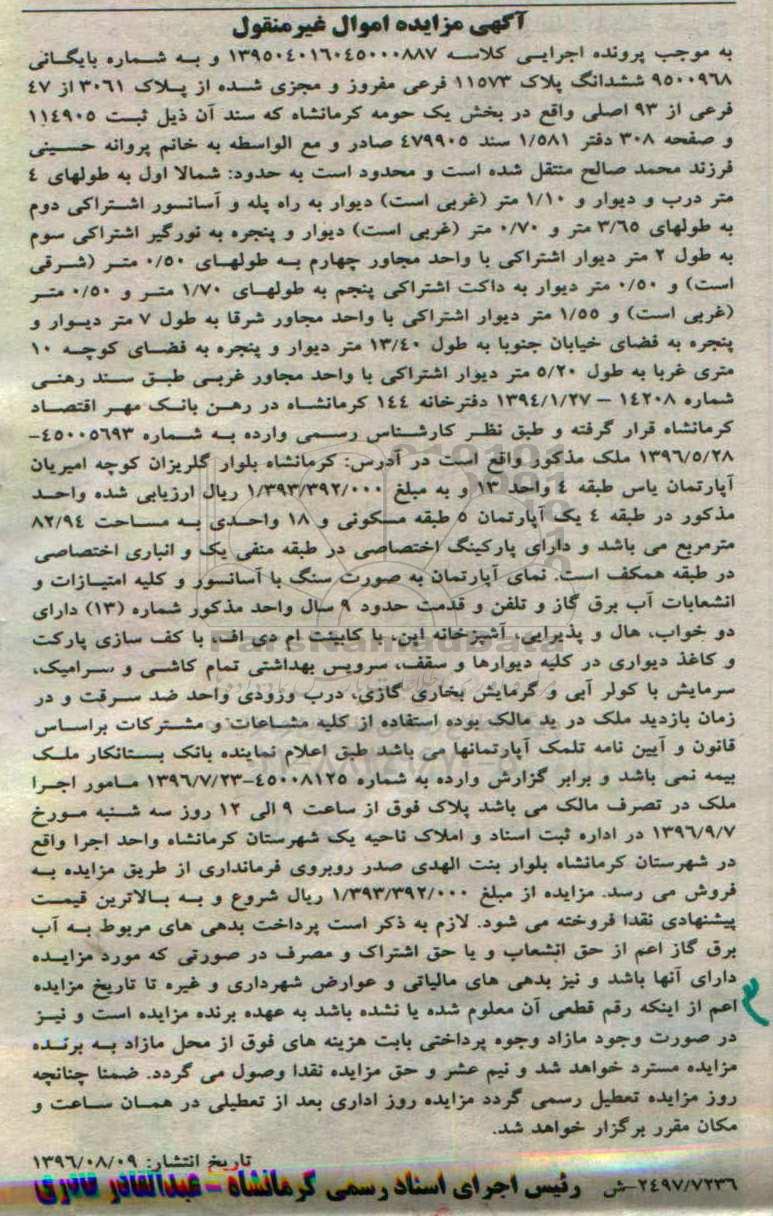 آگهی مزایده اموال غیرمنقول
به موجب پرونده اجرایی کلاسه ۱۳۹۵۰٤۰۱۶۰٤۵۰۰۰۸۸۷ و به شماره بایگانی
۹۵۰۰۹۶۸ ششدانگ پلاک ۱۱۵۷۳ فرعی مفروز و مجزی شده از پلاک ۳۰۶۱ از ٤۷
فرعی از ۹۳ اصلی واقع در بخش یک حومه کرمانشاه که سند آن ذیل ثبت ۱۱٤۹۰۵
و صفحه ۳۰۸ دفتر ۱/۵۸۱ سند ٤۷۹۹۰۵ صادر و مع الواسطه به خانم پروانه حسینی
فرزند محمد صالح منتقل شده است و محدود است به حدود: شمالا اول به طولهای ٤
متر درب و دیوار و ۱/۱۰ متر (غربی است) دیوار به راه پله و آسانسور اشتراکی دوم
به طولهای ۳/۶۵ متر و ۰/۷۰ متر (غربی است) دیوار و پنجره به نورگیر اشتراکی سوم
به طول ۲ متر دیوار اشتراکی با واحد مجاور چهارم به طولهای ۰/۵۰ متر (شرقی
است) و ۰/۵۰ متر دیوار به داکت اشتراکی پنجم به طولهای ۱/۷۰ متر و ۰/۵۰ متر
(غربی است) و ۱/۵۵ متر دیوار اشتراکی با واحد مجاور شرقا به طول ۷ متر دیوار و
پنجره به فضای خیابان جنوبا به طول ۱۳/٤۰ متر دیوار و پنجره به فضای کوچه ۱۰
متری غربا به طول ۵/۲۰ متر دیوار اشتراکی با واحد مجاور غربی طبق سند رهنی
شماره ۱٤۲۰۸ – ۱۳۹٤/۱/۲۷ دفترخانه ۱٤٤ کرمانشاه در رهن بانک مهر اقتصاد
کرمانشاه قرار گرفته و طبق نظر کارشناس رسمی وارده به شماره ٤۵۰۰۵۶۹۳-
۱۳۹۶/۵/۲۸ ملک مذکور واقع است در آدرس: کرمانشاه بلوار گلریزان کوچه امیریان
آپارتمان یاس طبقه ٤ واحد ۱۳ و به مبلغ ۱/۳۹۳/۳۹۲/۰۰۰ ریال ارزیابی شده واحد
مذکور در طبقه ٤ یک آپارتمان ۵ طبقه مسکونی و ۱۸ واحدی به مساحت ۸۲/۹٤
مترمربع می باشد و دارای پارکینگ اختصاصی در طبقه منفی یک و انباری اختصاصی
در طبقه همکف است. نمای آپارتمان به صورت سنگ با آسانسور و کلیه امتیازات و
انشعابات آب برق گاز و تلفن و قدمت حدود ۹ سال واحد مذکور شماره (۱۳) دارای
دو خواب، هال و پذیرایی، آشپزخانه اپن، با کابینت ام دی اف، با کف سازی پارکت
و کاغذ دیواری در کلیه دیوارها و سقف، سرویس بهداشتی تمام کاشی و سرامیک،
سرمایش با کولر آبی و گرمایش بخاری گازی، درب ورودی واحد ضد سرقت و در
زمان بازدید ملک در ید مالک بوده استفاده از کلیه مشاعات و مشترکات براساس
قانون و آیین نامه تلمک آپارتمانها می باشد طبق اعلام نماینده بانک بستانکار ملک
بیمه نمی باشد و برابر گزارش وارده به شماره ٤۵۰۰۸۱۲۵-۱۳۹۶/۷/۲۳ مامور اجرا
ملک در تصرف مالک می باشد پلاک فوق از ساعت ۹ الی ۱۲ روز سه شنبه مورخ
۱۳۹۶/۹/۷ در اداره ثبت اسناد و املاک ناحیه یک شهرستان کرمانشاه واحد اجرا واقع
در شهرستان کرمانشاه بلوار بنت الهدی صدر روبروی فرمانداری از طریق مزایده به
فروش می رسد. مزایده از مبلغ ۱/۳۹۳/۳۹۲/۰۰۰ ریال شروع و به بالاترین قیمت
پیشنهادی نقدا فروخته می شود. لازم به ذکر است پرداخت بدهی های مربوط به آب
برق گاز اعم از حق انشعاب و یا حق اشتراک و مصرف در صورتی که مورد مزایده
دارای آنها باشد و نیز بدهی های مالیاتی و عوارض شهرداری و غیره تا تاریخ مزایده
اعم از اینکه رقم قطعی آن معلوم شده یا نشده باشد به عهده برنده مزایده است و نیز
در صورت وجود مازاد وجوه پرداختی بابت هزینه های فوق از محل مازاد به برنده
مزایده مسترد خواهد شد و نیم عشر و حق مزایده نقدا وصول می گردد. ضمنا چنانچه
روز مزایده تعطیل رسمی گردد مزایده روز اداری بعد از تعطیلی در همان ساعت و
مکان مقرر برگزار خواهد شد.
تاریخ انتشار: ۱۳۹۶/۰۸/۰۹
۲٤۹۷/۷۲۳۶-ش رئیس اجرای اسناد رسمی کرمانشاه - عبدالقادر قادری